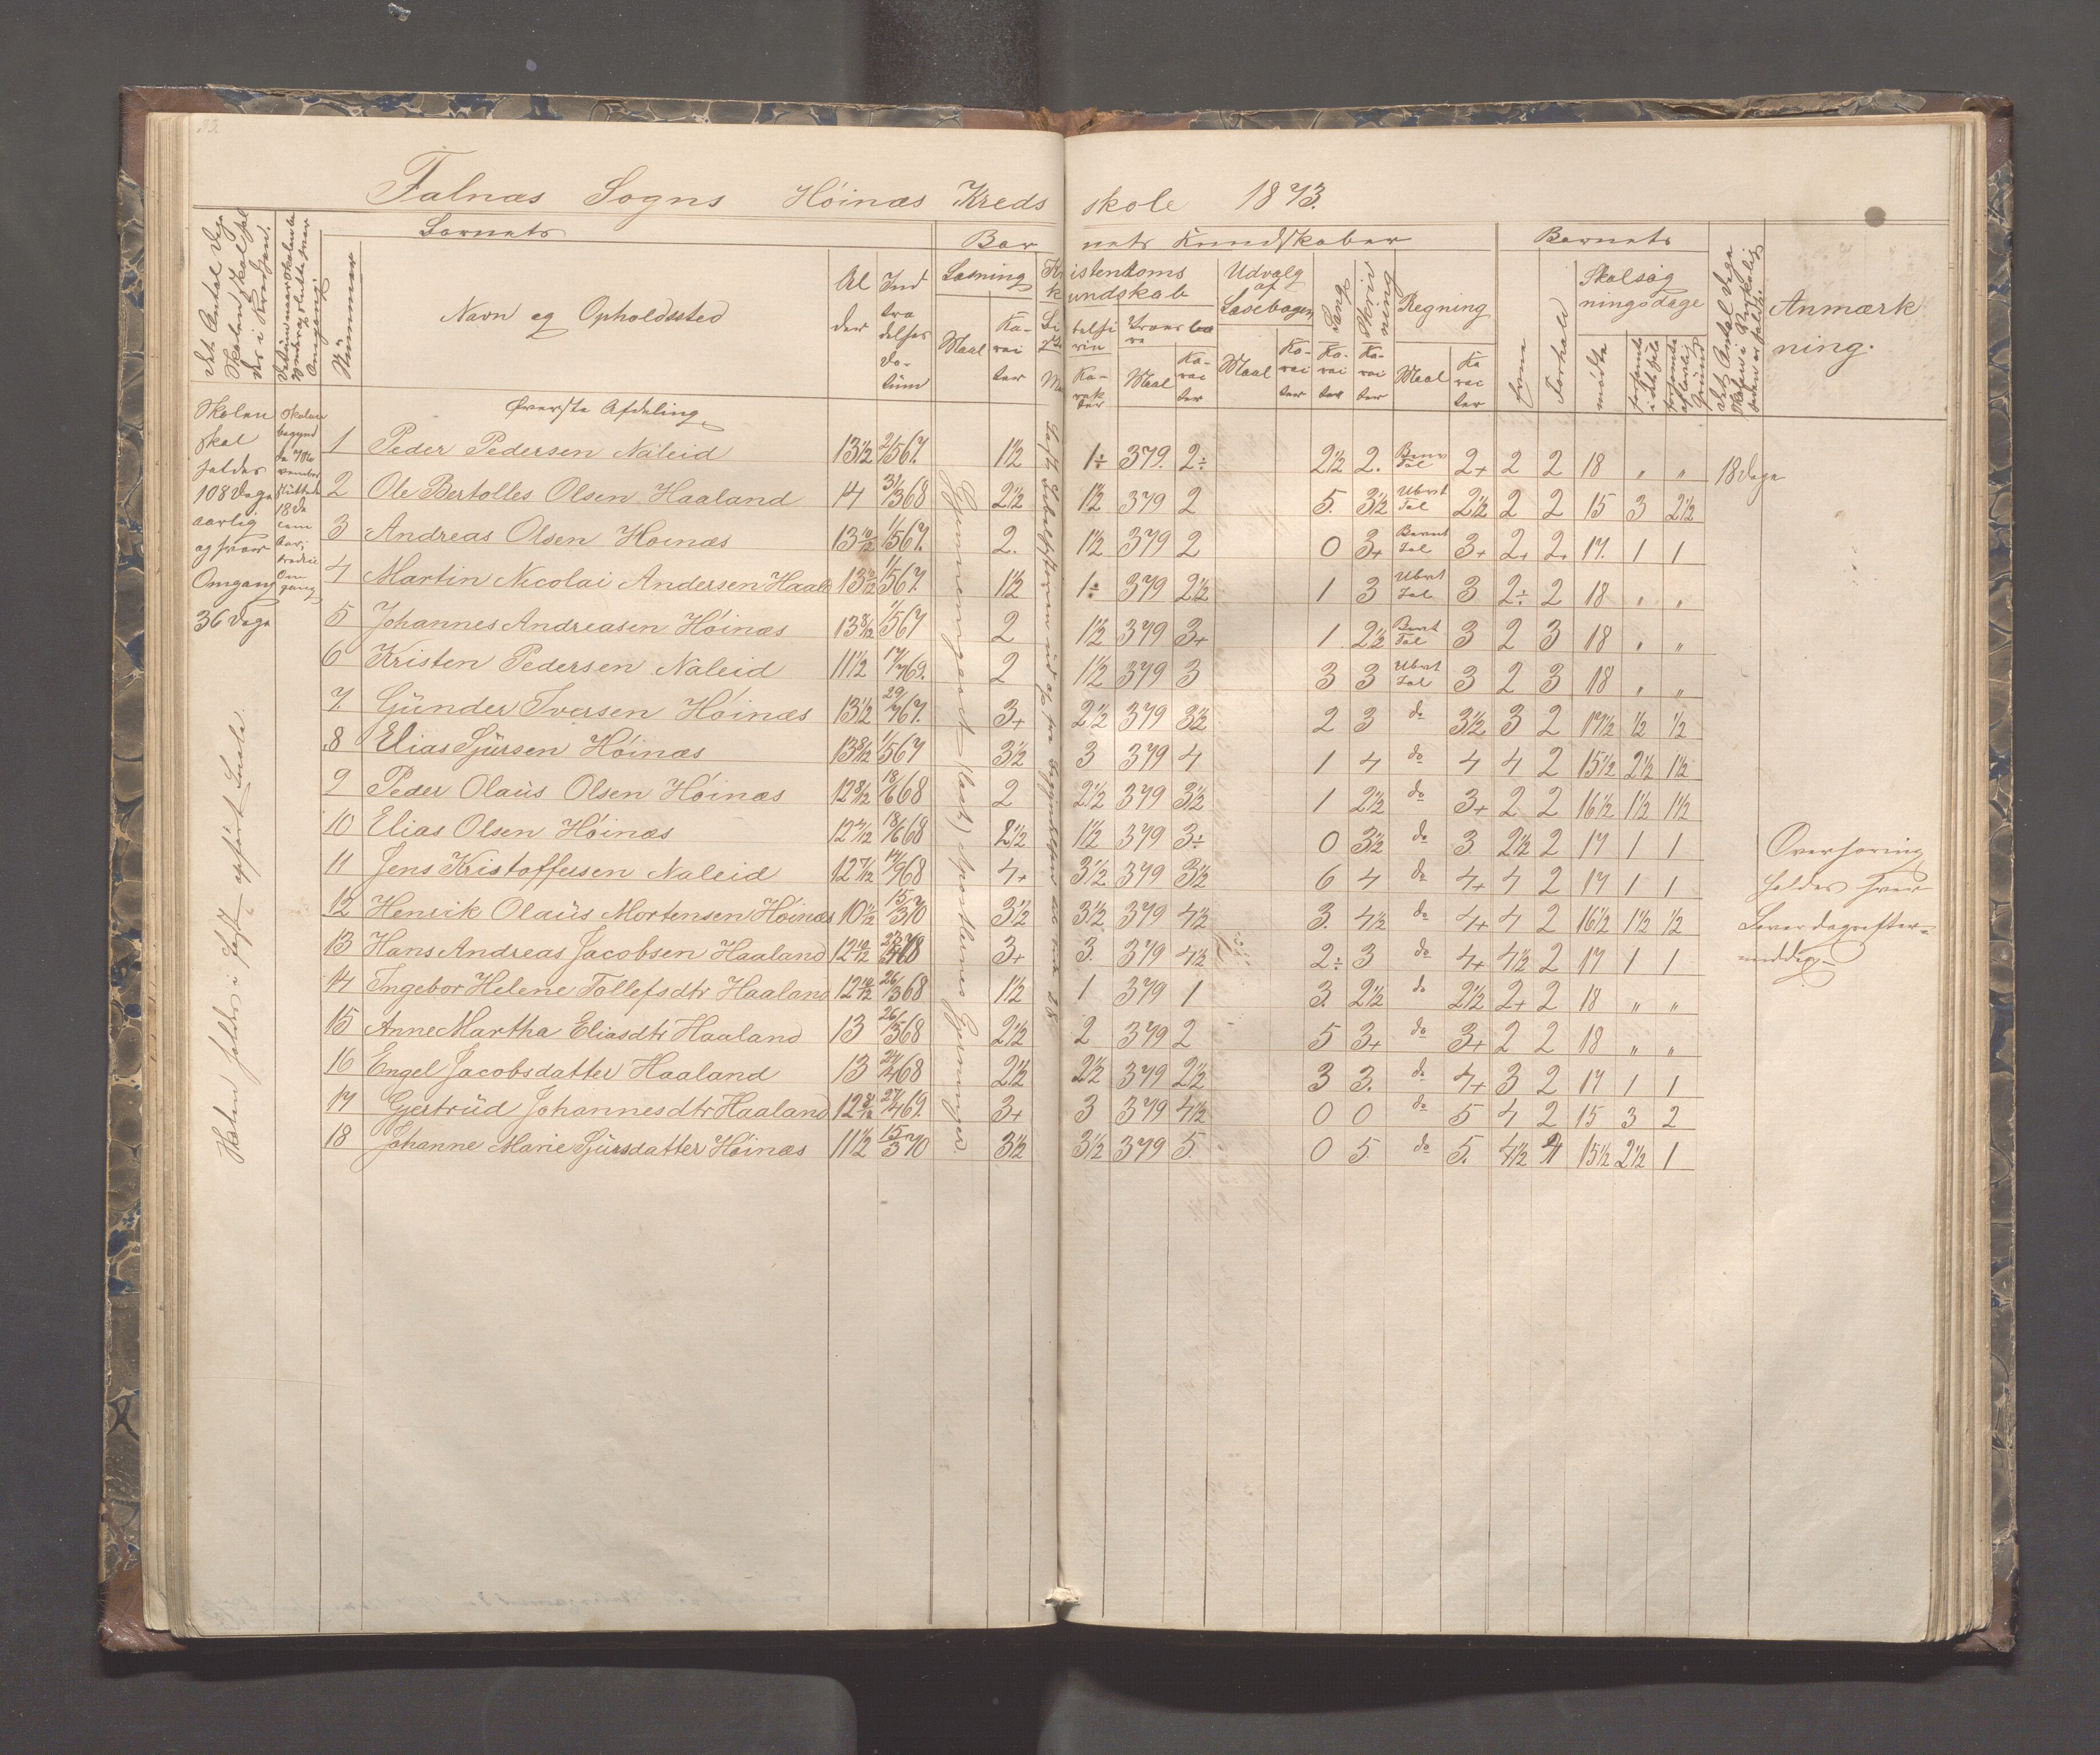 32
Falnæs Sogns Høinæs Kreds skole 1873.
Barnets
Bar nets Kundskaber
Barnets
Det Antal Dage Skolen skal holdes i Kredsen.
Nummer
Navn og Opholdssted
Al der
Ind træ delses Da- tum
Læsning
Maal
Ka- rac ter
istendoms undskab
Maal
Ka- rac ter
Udvalg af Læsebogen
Maal
Ka- rac ter
Sang
Ka- rac ter
Skriv ning
Ka- rac ter
Regning
Maal
Ka rac ter
Evne
Forhold
Skolesøg ningsdage
mødte
Anmærk ning.
Øverste Afdeling
Skolen skal holdes 108 Dage aarlig og hver Omgang 36 Dage
Skolen holdes i fast opført Locale.
1 Peder Pedersen Naleid 13½ 2/5 67. 1½ 1÷ 379. 2÷ 2½ 2. Benv Tal 2+ 2 2 18 " " 18 Dage
2 Ole Bertolles Olsen Haaland 14 31/3 68 2½ 1½ 379 2 5. 3½ Ubvt Tal 2½ 2 2 15 3 2½
3 Andreas Olsen Høinæs 13 10/12 1/5 67. 2. 1½ 379 2 0 3+ Benvt Tal 3+ 2+ 2+ 17. 1 1
4 Martin Nicolai Andersen Haal 1/5 67. 1½ 1÷ 379 2½ 1 3 Ubvt Tal 3 2÷ 2 18 " "
5 Johannes Andreasen Høinæs 13 8/12 1/5 67 2 1½ 379 3+ 1 2½ Benvt Tal 3 2 3 18 " "
6 Kristen Pedersen Naleid 11½ 14/7 69. 2 1½ 379 3 3 3 Ubvt Tal 3 2 3 18 " "
7. Gunder Iversen Høinæs 13½ 29/7 67. 3+ 2½ 379 3½ 2 3 do 3½ 3 2 17½ ½ ½
8 Elias Sjursen Høinæs 13 8/12 1/5 67 3½ 3 379 4 1 4 do 4 4 2 15½ 2½ 1½
9 Peder Olaus Olsen Høinæs 12 8/12 18/6 68 2 2½ 379 3½ 1 2½ do 3+ 2 2 16½ 1½ 1½
10 Elias Olsen Høinæs 12 7/12 18/6 68 2½ 1½ 379 3÷ 0 3½ do 3 2½ 2 17 1 1
11 Jens Kristoffersen Naleid 12 7/12 14/9 68 4+ 3½ 379 3½ 6 4 do 4+ 4 2 17 1 1
12 Henrik Olaus Mortensen Høinæs 10½ 15/3 70 3½ 3½ 379 4½ 3. 4½ do 4+ 4 2 16½ 1½ ½
13 Hans Andreas Jacobsen Haaland 12 10/12 3+ 3. 379 4½ 2÷ 3 do 4+ 4½ 2 17 1 1
14 Ingebor Helene Tollefsdtr Haaland 12 10/12 26/3 68 1½ 1 379 1 3. 2½ do 2½ 2+ 2 18 " "
15 Anne Martha Eliasdtr Haaland 13 26/3 68 2½ 2 379 2 5 3+ do 3+ 2 2 18 " "
16 Engel Jacobsdatter Haaland 13 27/4 68 2½ 2½ 379 2½ 3 3. do 4+ 3 2 17 1 1
17 Gjertrud Johannesdtr Haaland 12 8/12 27/4 69. 3+ 3 379 4½ 0 0 do 5 4 2 15 3 2
18 Johanne Marie Sjursdatter Høinæs 11½ 15/3 70 3½ 3½ 379 5. 0 5. do 5. 4½ 15½ 2½ 1
Overhøring
holdes hver
Løverdagsefter-
middag.